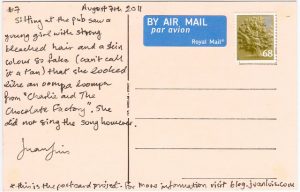 67 August 7th, 2011
Sitting at the pub saw a
young girl with strong
bleached hair and a skin
colour so fake (can't call
it a tan) that she looked
like an oompa loompa
from "Charlie and The
Chocolate Factory". She
did not sing the song however.
Juanluis
BY AIR MAIL
par avion
Royal Mail®
68
* this is the postcard project. For more information visit blog.juanluis.com